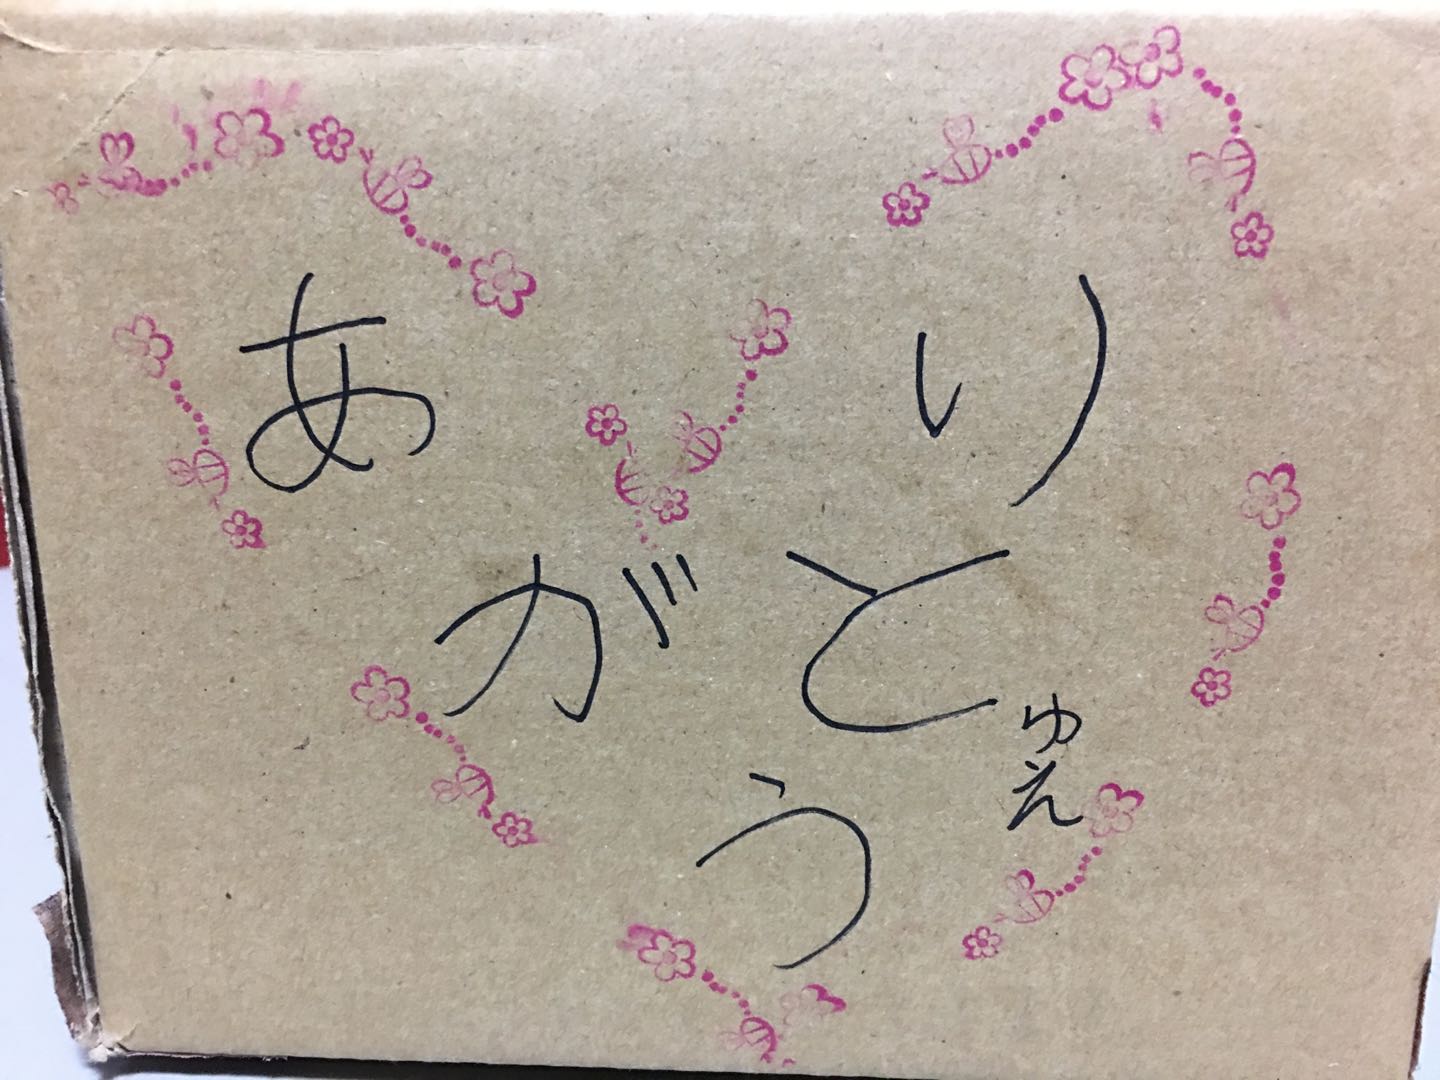 あり
がと
う
ゆえ